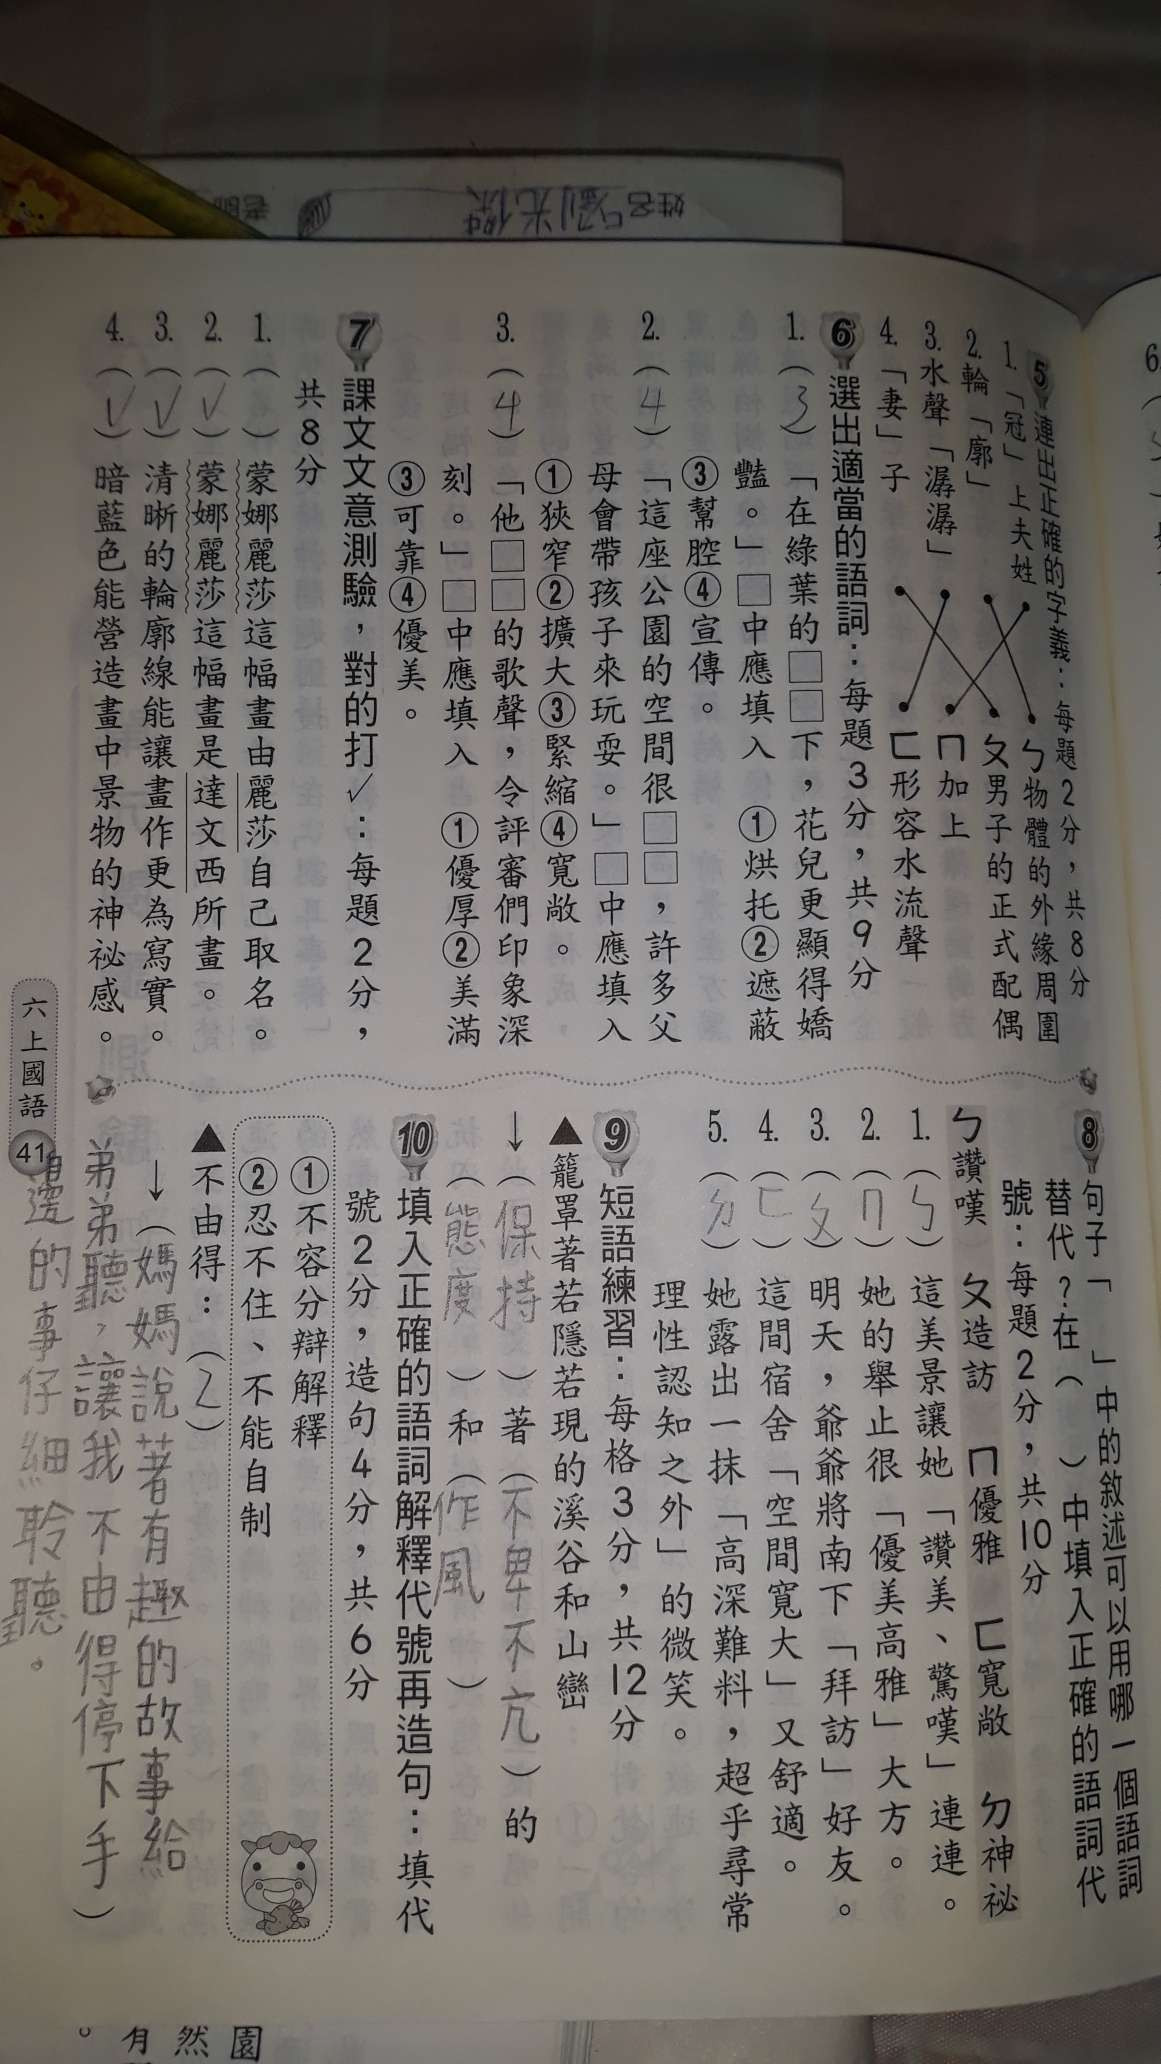 姓名
老師
5 連出正確的字義：每題2分，共8分
1.「冠」上夫姓
2. 輪「廓」
3. 水聲「潺潺」
4.「妻」子
ㄅ物體的外緣周圍
ㄆ男子的正式配偶
ㄇ加上
ㄈ形容水流聲
6 選出適當的語詞：每題3分，共9分
1.（3）「在綠葉的□□下，花兒更顯得嬌
豔。」□中應填入 ①烘托②遮蔽
③幫腔④宣傳。
2.（4）「這座公園的空間很□□，許多父
母會帶孩子來玩耍。」□中應填入
①狹窄②擴大③緊縮④寬敞。
3.（4）「他□□的歌聲，令評審們印象深
刻。」□中應填入 ①優厚②美滿
③可靠④優美。
7 課文文意測驗，對的打✓：每題2分，
共8分
1.（ ）蒙娜麗莎這幅畫由麗莎自己取名。
2.（✓）蒙娜麗莎這幅畫是達文西所畫。
3.（✓）清晰的輪廓線能讓畫作更為寫實。
4.（✓）暗藍色能營造畫中景物的神祕感。
8 句子「 」中的敘述可以用哪一個語詞
替代？在（ ）中填入正確的語詞代
號：每題2分，共10分
ㄅ讚嘆 ㄆ造訪 ㄇ優雅 ㄈ寬敞 ㄉ神祕
1.（ㄅ）這美景讓她「讚美、驚嘆」連連。
2.（ㄇ）她的舉止很「優美高雅」大方。
3.（ㄆ）明天，爺爺將南下「拜訪」好友。
4.（ㄈ）這間宿舍「空間寬大」又舒適。
5.（ㄉ）她露出一抹「高深難料，超乎尋常
理性認知之外」的微笑。
9 短語練習：每格3分，共12分
▲籠罩著若隱若現的溪谷和山巒
→（保持）著（不卑不亢）的
（態度）和（作風）
10 填入正確的語詞解釋代號再造句：填代
號2分，造句4分，共6分
①不容分辯解釋
②忍不住、不能自制
▲不由得：（2）
→（媽媽說著有趣的故事給
弟弟聽，讓我不由得停下手）
邊的事仔細聆聽。
六上國語 41
6.
園
然
有
。